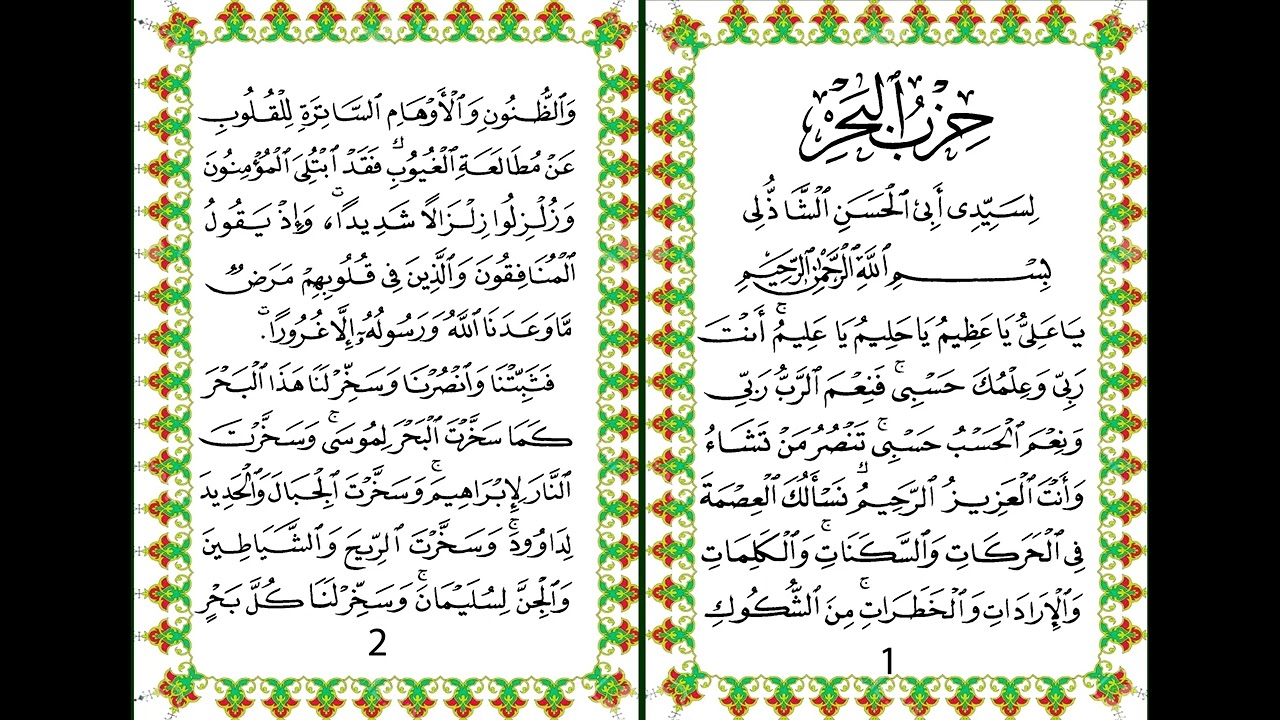 حِزْبُ ٱلْبَحْرِ
لِسَيِّدِى أَبِى ٱلْحَسَنِ ٱلْشَّاذُّلِى
بِسْمِ ٱللَّهِ ٱلرَّحْمَٰنِ ٱلرَّحِيمِ
يَا عَلِىُّ يَا عَظِيمُ يَا حَلِيمُ يَا عَلِيمُ ۚ أَنْتَ
رَبِّى وَعِلْمُكَ حَسْبِى ۚ فَنِعْمَ ٱلرَّبُّ رَبِّى
وَنِعْمَ ٱلْحَسْبُ حَسْبِى ۚ تَنْصُرُ مَنْ تَشَاءُ
وَأَنْتَ ٱلْعَزِيزُ ٱلرَّحِيمُ نَسْأَلُكَ ٱلْعِصْمَةَ
فِى ٱلْحَرَكَاتِ وَٱلسَّكَنَاتِ ۚ وَٱلْكَلِمَاتِ
وَٱلْإِرَادَاتِ وَٱلْخَطَرَاتِ ۚ مِنَ ٱلشُّكُوكِ
1
وَٱلظُّنُونِ وَٱلْأَوْهَامِ ٱلسَّاتِرَةِ لِلْقُلُوبِ
عَنْ مُطَالَعَةِ ٱلْغُيُوبِ فَقَدْ ٱبْتُلِىَ ٱلْمُؤْمِنُونَ
وَزُلْزِلُوا زِلْزَالًا شَدِيدًا، وَإِذْ يَقُولُ
ٱلْمُنَافِقُونَ وَٱلَّذِينَ فِى قُلُوبِهِمْ مَرَضٌ
مَّا وَعَدَنَا ٱللَّهُ وَرَسُولُهُۥ إِلَّا غُرُورًا.
فَثَبِّتْنَا وَٱنْصُرْنَا وَسَخِّرْ لَنَا هَذَا ٱلْبَحْرَ
كَمَا سَخَّرْتَ ٱلْبَحْرَ لِمُوسَى ۚ وَسَخَّرْتَ
ٱلنَّارَ لِإِبْرَاهِيمَ ۚ وَسَخَّرْتَ ٱلْجِبَالَ وَٱلْحَدِيدَ
لِدَاوُودَ ۚ وَسَخَّرْتَ ٱلرِّيحَ وَٱلشَّيَاطِينَ
وَٱلْجِنَّ لِسُلَيْمَانَ ۚ وَسَخِّرْ لَنَا كُلَّ بَحْرٍ
2